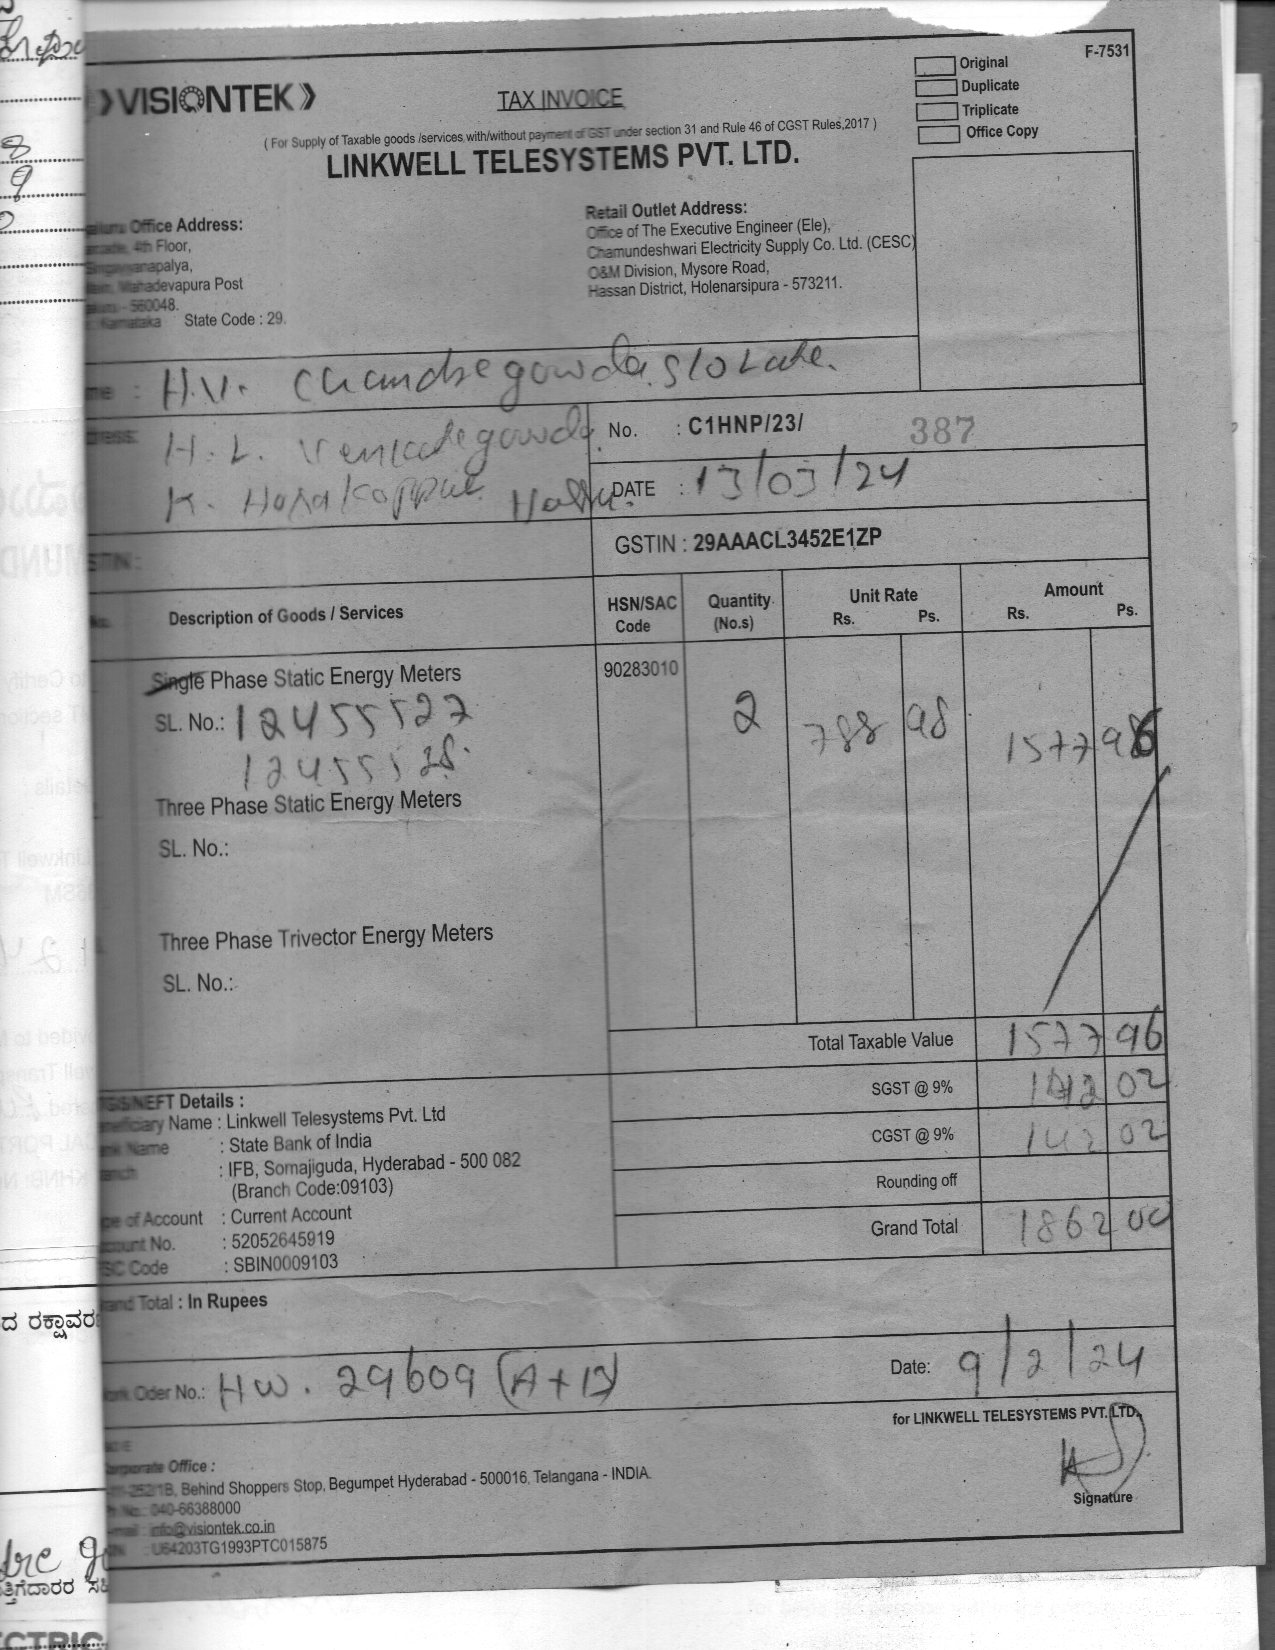 F-7531
Original
Duplicate
Triplicate
Office Copy
VISIONTEK
TAX INVOICE
( For Supply of Taxable goods /services with/without payment of GST under section 31 and Rule 46 of CGST Rules,2017 )
LINKWELL TELESYSTEMS PVT. LTD.
Office Address:
4th Floor,
Mahadevapura Post
- 560048.
Karnataka State Code : 29.
Retail Outlet Address:
Office of The Executive Engineer (Ele),
Chamundeshwari Electricity Supply Co. Ltd. (CESC)
O&M Division, Mysore Road,
Hassan District, Holenarsipura - 573211.
: H.V. Chandregowda S/o Late.
H.L. Venkategowda
K. Hosakoppalu
No. : C1HNP/23/ 387
DATE : 13/03/24
GSTIN : 29AAACL3452E1ZP
Description of Goods / Services
HSN/SAC Code
Quantity (No.s)
Unit Rate Rs. Ps.
Amount Rs. Ps.
Single Phase Static Energy Meters 90283010
SL. No.: 12455527 2 788 98 1577 96
12455528.
Three Phase Static Energy Meters
SL. No.:
Three Phase Trivector Energy Meters
SL. No.:
Total Taxable Value 1577 96
SGST @ 9% 142 02
CGST @ 9% 142 02
Rounding off
Grand Total 1862 00
NEFT Details :
Name : Linkwell Telesystems Pvt. Ltd
Name : State Bank of India
: IFB, Somajiguda, Hyderabad - 500 082
(Branch Code:09103)
of Account : Current Account
No. : 52052645919
Code : SBIN0009103
Total : In Rupees
Oder No.: HW. 29609 (A+B)
Date: 9/2/24
for LINKWELL TELESYSTEMS PVT. LTD.
Signature
Corporate Office :
Behind Shoppers Stop, Begumpet Hyderabad - 500016, Telangana - INDIA.
040-66388000
info@visiontek.co.in
: U64203TG1993PTC015875